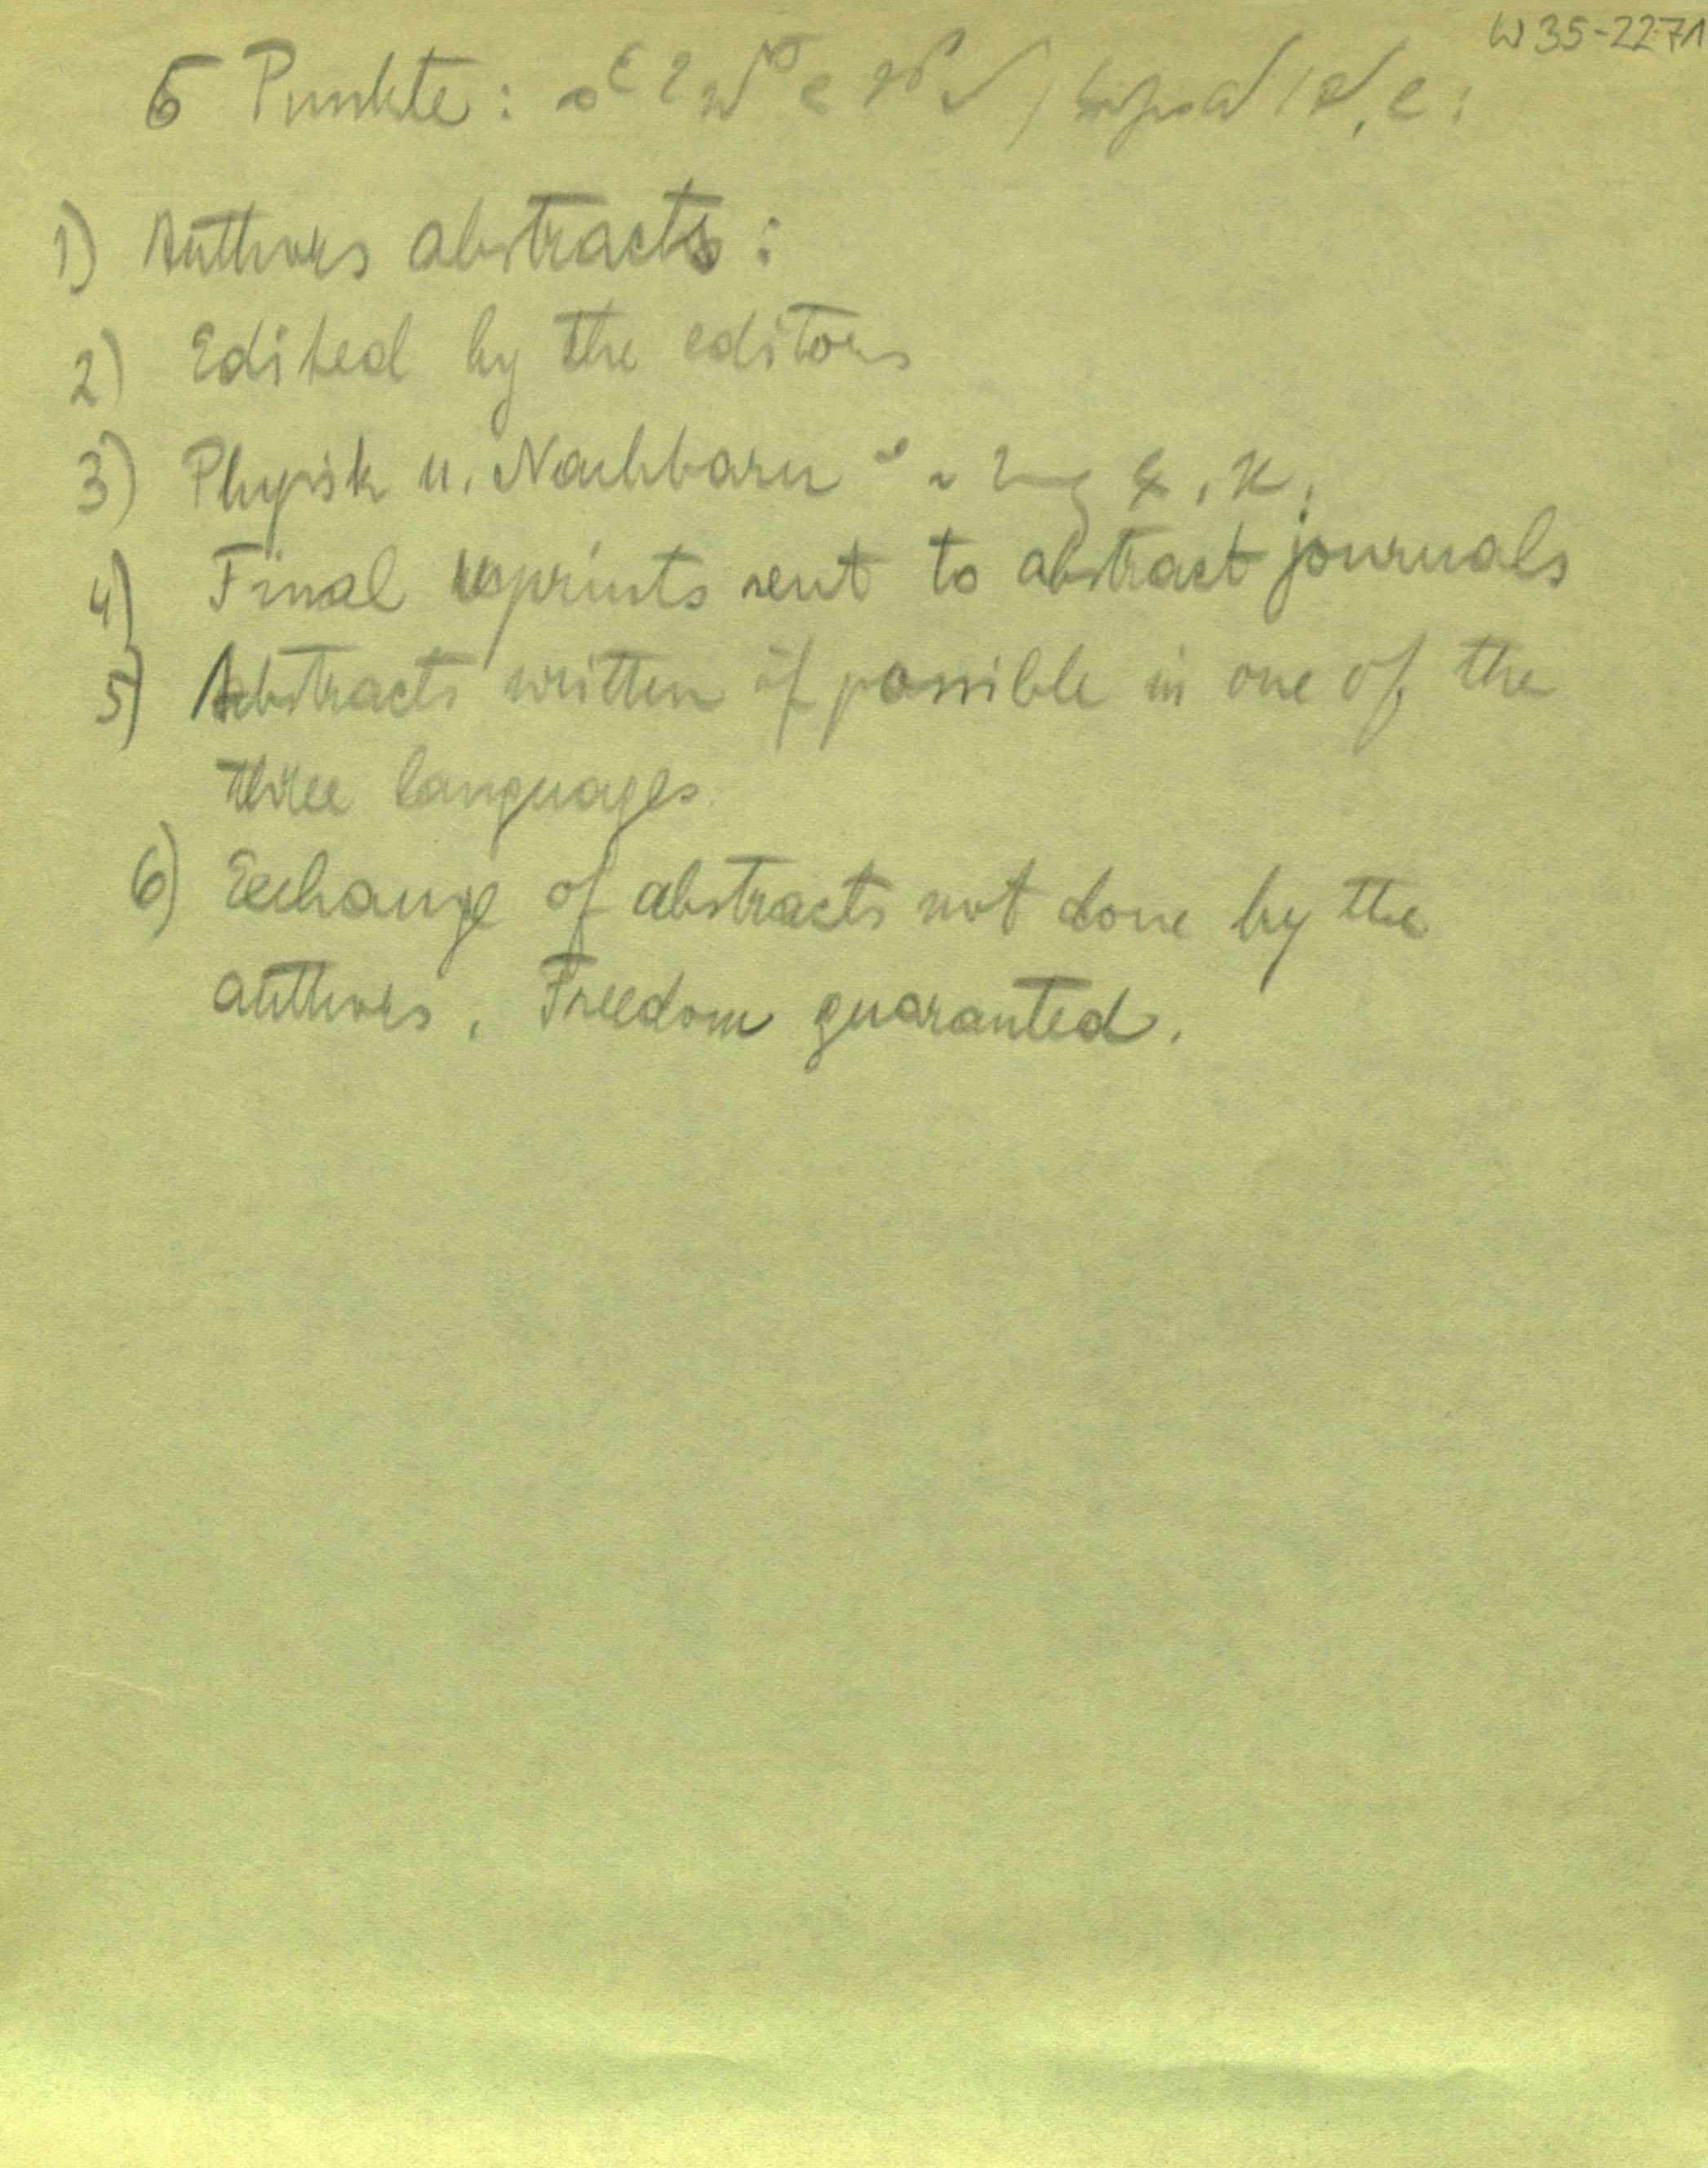 W35-2271
6 Punkte:
1) Authors abstracts:
2) Edited by the editors
3) Physik u. Nachbarn
4) Final reprints sent to abstract journals
5) Abstracts written if possible in one of the
three languages.
6) Exchange of abstracts not done by the
authors. Freedom guaranted.